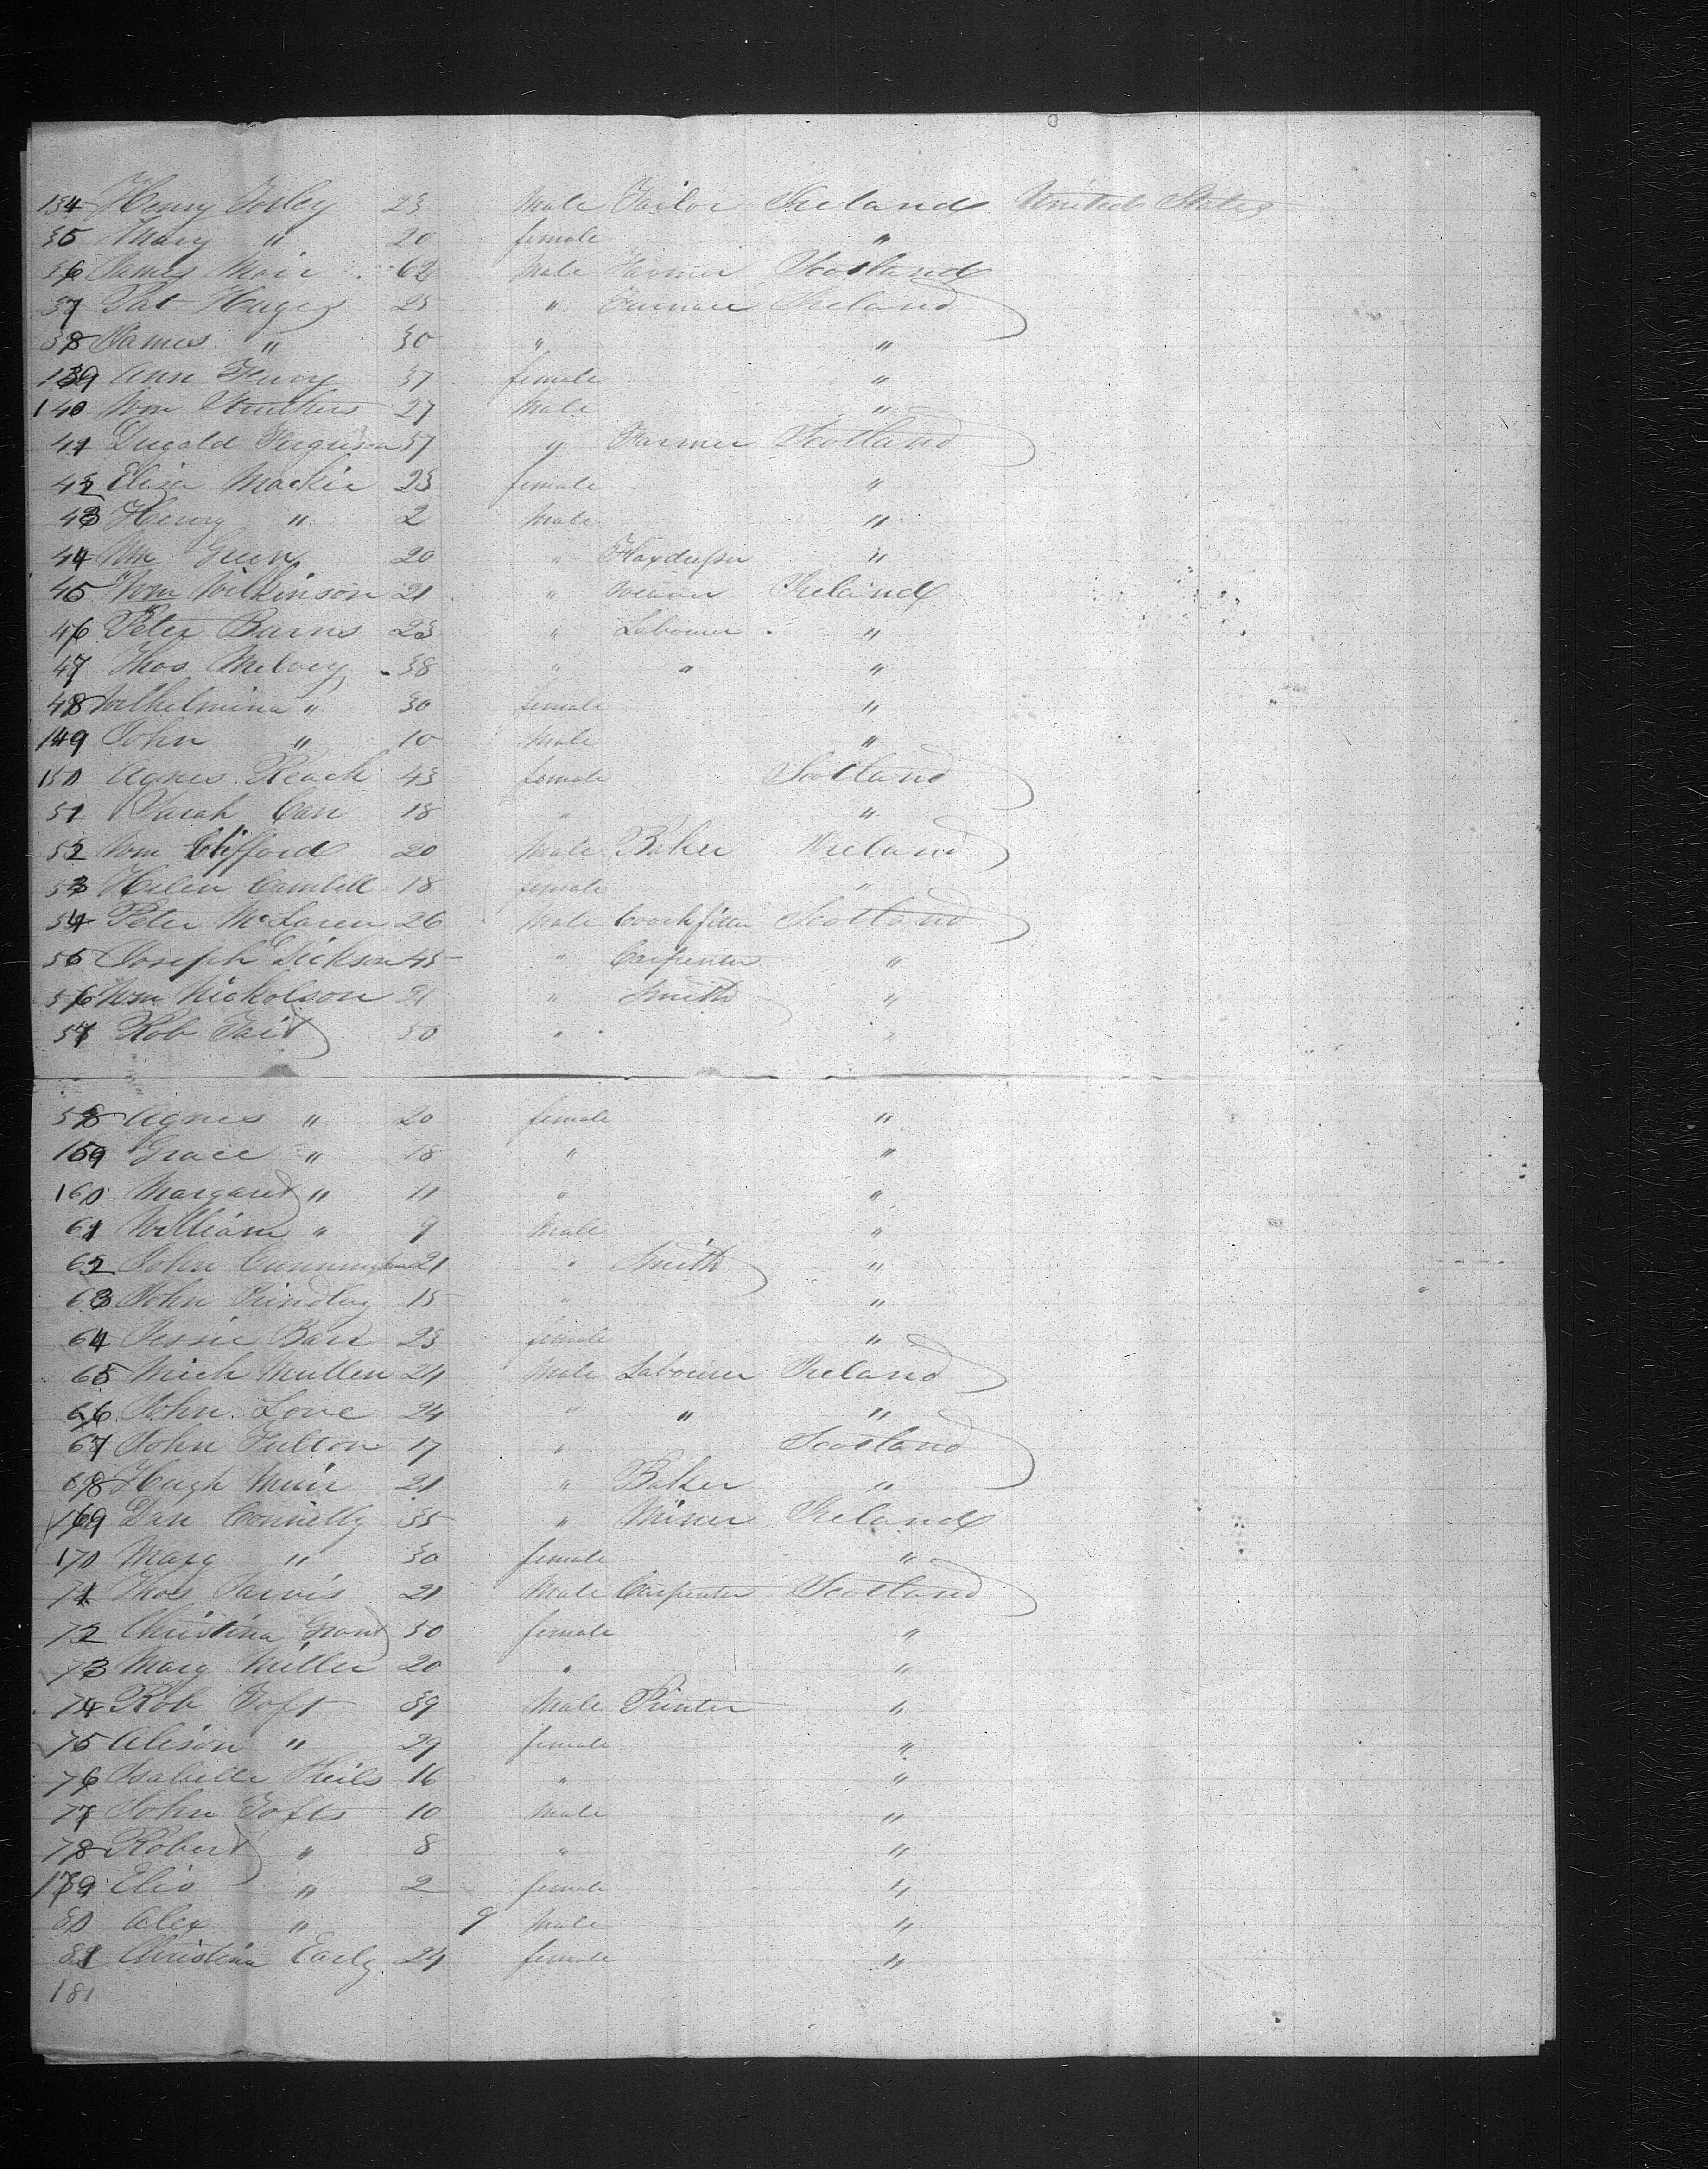 134 Henry Torley 23 Male Tailor Ireland United States
35 Mary " 20 female "
36 James Moir 62 Male Farmer Scotland
37 Pat Huges 25 " Ireland
38 James " 30 " "
139 Ann 37 female "
140 Wm Struthers 27 Male "
41 Dugald Ferguson 37 " Farmer Scotland
42 Eliza Mackie 23 female "
43 Henry " 2 Male "
44 Wm Green 20 " "
45 Wm Wilkinson 21 " Weaver Ireland
46 Peter Burns 23 " Labourer "
47 Thos Melvey 38 " " "
48 Wilhelmina " 30 female "
149 John " 10 Male "
150 Agnes Reach 43 female Scotland
51 Sarah Carr 18 " "
52 Wm Clifford 20 Male Baker Ireland
53 Helen Cambell 18 female "
54 Peter McLaren 26 Male Coachfitter Scotland
55 Joseph Dickson 45 " Carpenter "
56 Wm Nicholson 21 " Smith "
57 Rob Tait 50 " "
58 Agnes " 20 female "
159 Grace " 18 " "
160 Margaret " 11 " "
61 William " 9 Male "
62 John Cunningham 21 " Smith "
63 John 15 " "
64 Jessie Barr 23 female "
65 Mich Mullen 24 Male Labourer Ireland
66 John Love 24 " " "
67 John Fulton 17 " Scotland
68 Hugh Muir 21 " Baker "
169 Dan Connelly 35 " Miner Ireland
170 Marg " 30 female "
71 Thos Jarvis 21 Male Carpenter Scotland
72 Christina Grant 30 female "
73 Marg Miller 20 " "
74 Rob Toft 39 Male Printer "
75 Alison " 29 female "
76 Isabella Sheils 16 " "
77 John Tofts 10 Male "
78 Robert " 8 " "
179 Eliz " 2 female "
80 Alex " 9 Male "
81 Christina Early 24 female "
181